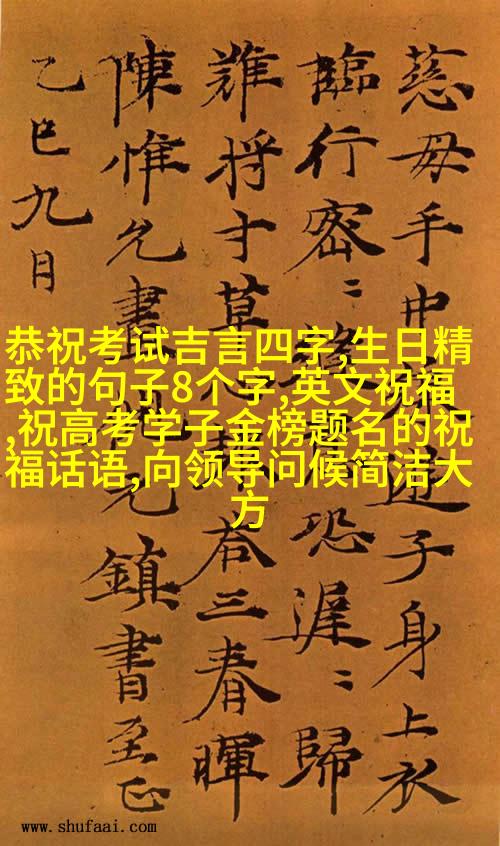 慈母手中遊子身上衣
臨行密〻縫恐遲〻歸
難將寸草心荅三春暉
陳惟允書元鎮書至正
乙巳九月
恭祝考试吉言四字,生日精
致的句子8个字,英文祝福
,祝高考学子金榜题名的祝
福话语,向领导问候简洁大
方
www.shufaai.com